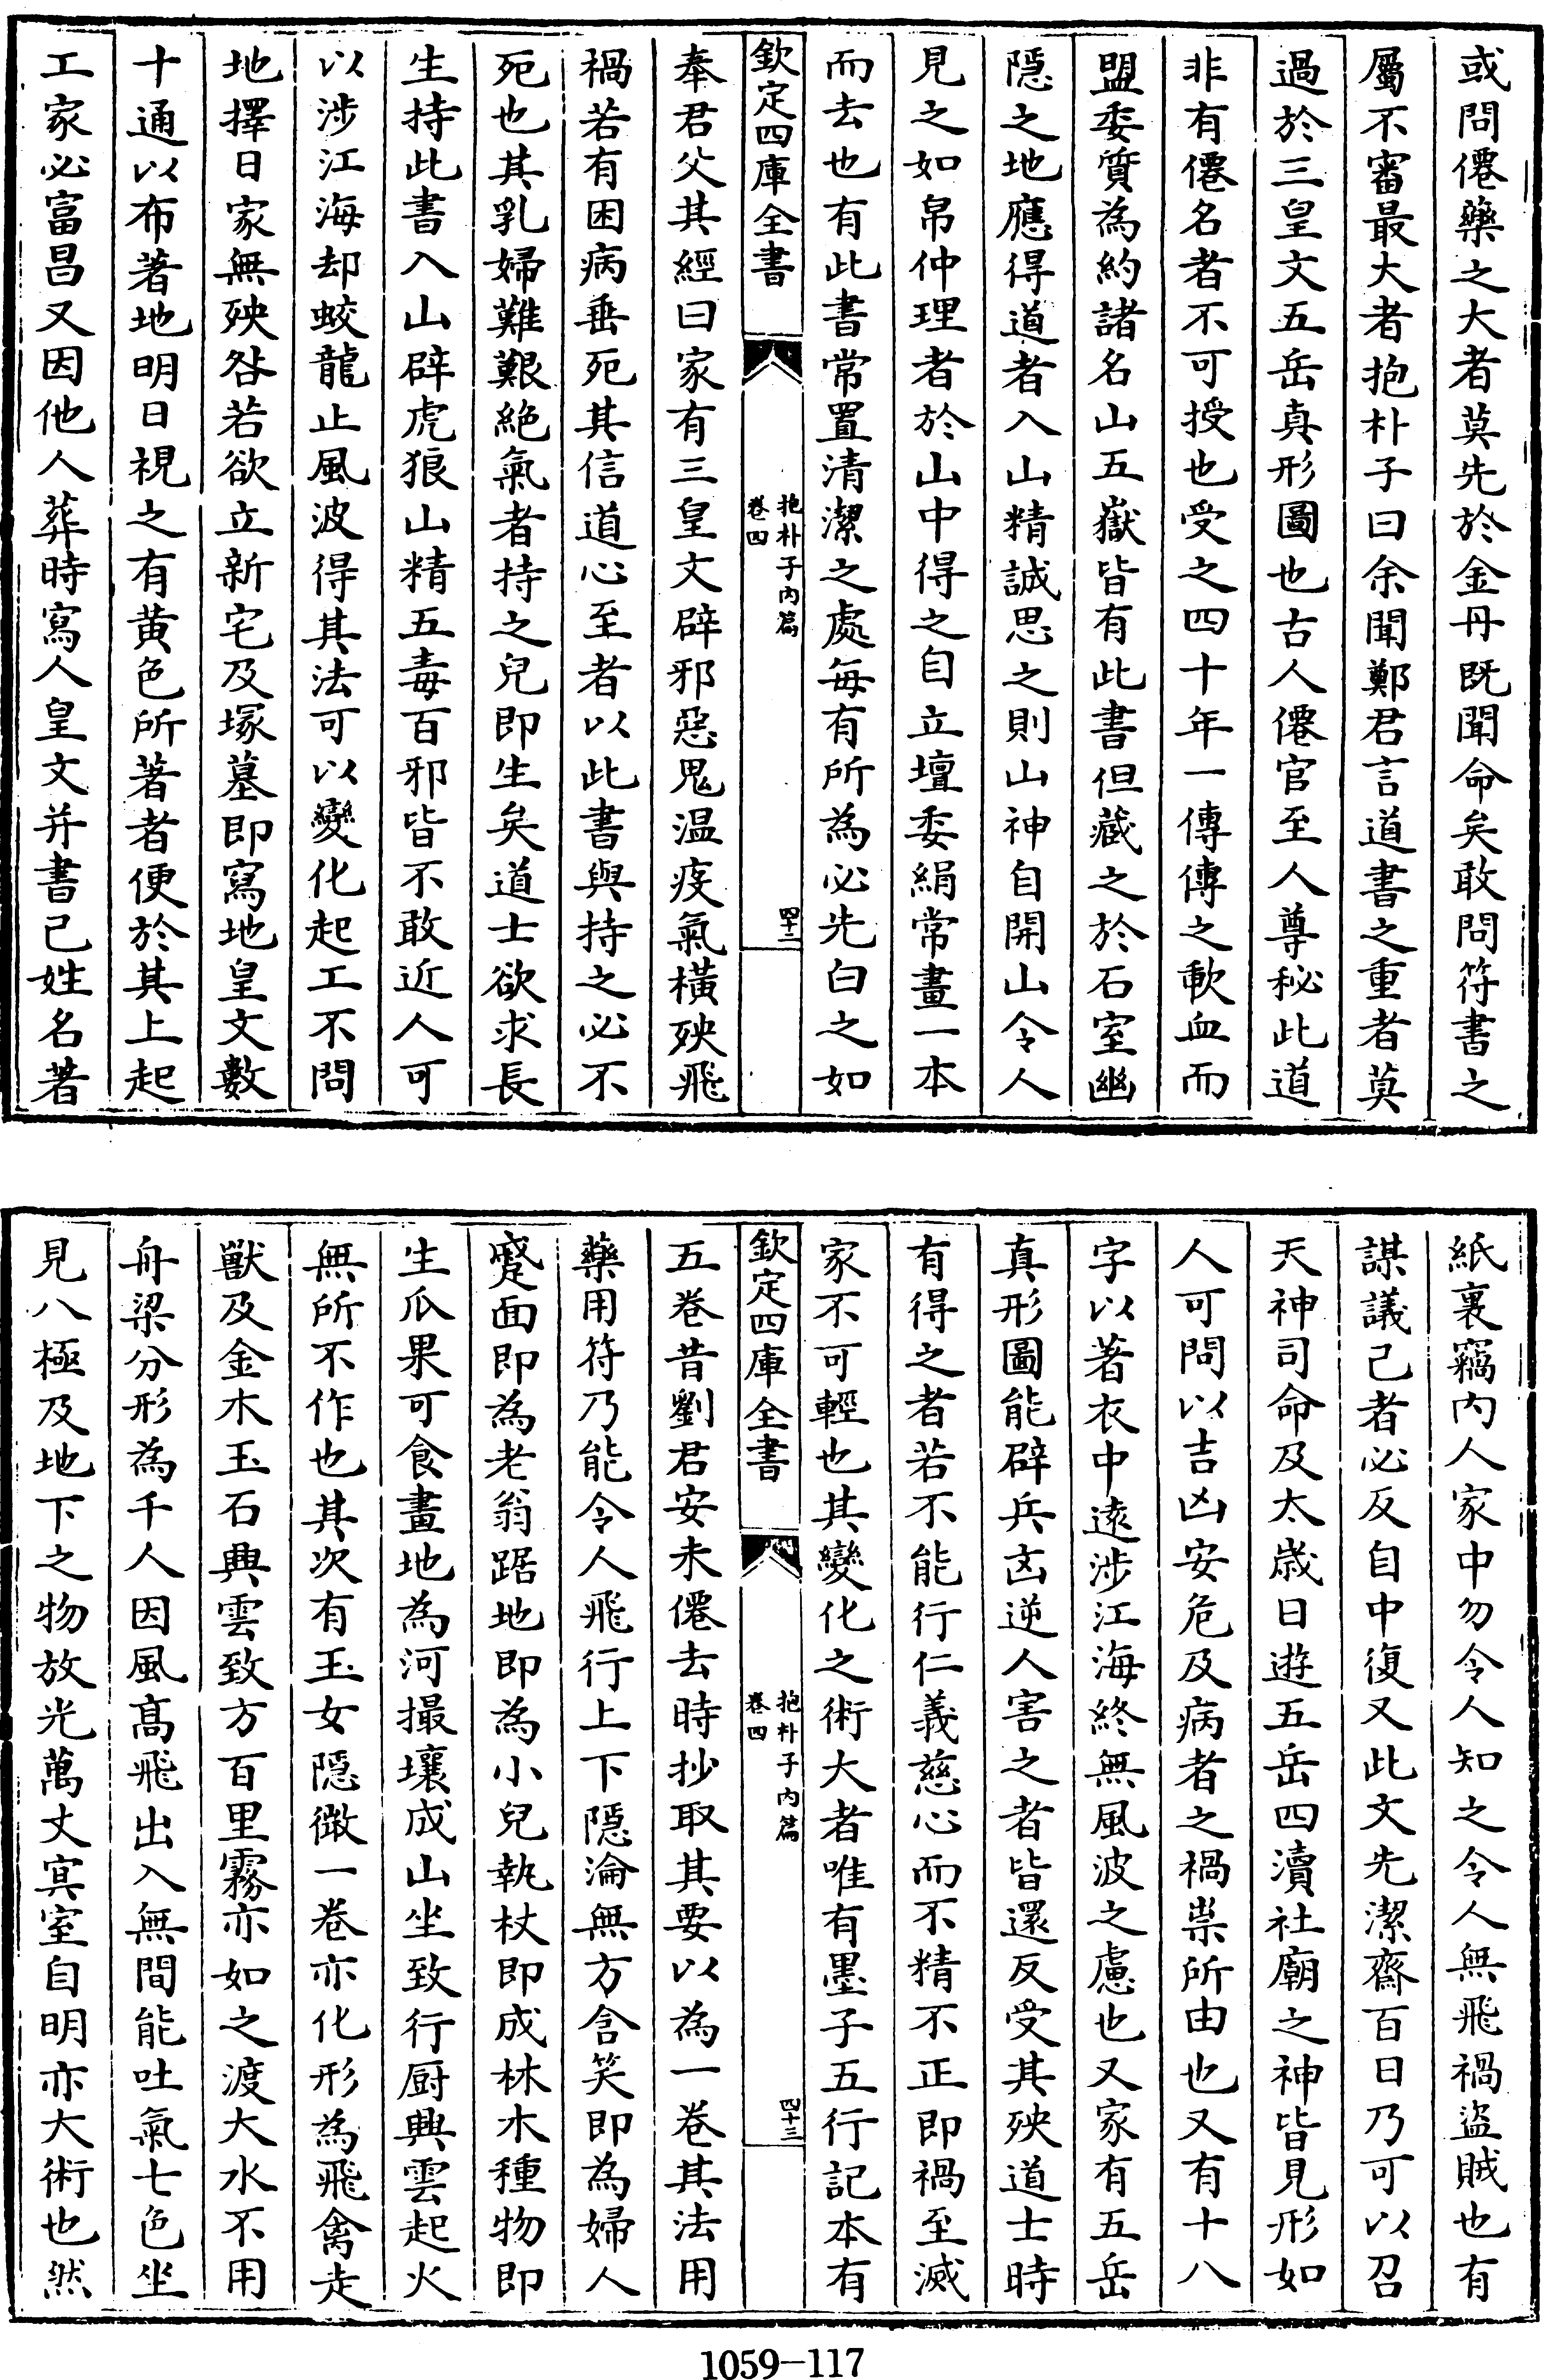 或問僊藥之大者莫先於金丹既聞命矣敢問符書之
屬不審最大者抱朴子曰余聞鄭君言道書之重者莫
過於三皇文五岳真形圖也古人僊官至人尊秘此道
非有僊名者不可授也受之四十年一傳傳之歃血而
盟委質為約諸名山五嶽皆有此書但藏之於石室幽
隱之地應得道者入山精誠思之則山神自開山令人
見之如帛仲理者於山中得之自立壇委絹常畫一本
而去也有此書常置清潔之處每有所為必先白之如
欽定四庫全書
抱朴子内篇
卷四
四十二
奉君父其經曰家有三皇文辟邪惡鬼温疫氣橫殃飛
禍若有困病垂死其信道心至者以此書與持之必不
死也其乳婦難艱絶氣者持之兒即生矣道士欲求長
生持此書入山辟虎狼山精五毒百邪皆不敢近人可
以涉江海却蛟龍止風波得其法可以變化起工不問
地擇日家無殃咎若欲立新宅及塚墓即寫地皇文數
十通以布著地明日視之有黄色所著者便於其上起
工家必富昌又因他人葬時寫人皇文并書己姓名著
紙裏竊内人家中勿令人知之令人無飛禍盜賊也有
謀議己者必反自中復又此文先潔齋百日乃可以召
天神司命及太歲日遊五岳四瀆社廟之神皆見形如
人可問以吉凶安危及病者之禍祟所由也又有十八
字以著衣中遠涉江海終無風波之慮也又家有五岳
真形圖能辟兵凶逆人害之者皆還反受其殃道士時
有得之者若不能行仁義慈心而不精不正即禍至滅
家不可輕也其變化之術大者唯有墨子五行記本有
欽定四庫全書
抱朴子内篇
卷四
四十三
五卷昔劉君安未僊去時抄取其要以為一卷其法用
藥用符乃能令人飛行上下隱淪無方含笑即為婦人
蹙面即為老翁踞地即為小兒執杖即成林木種物即
生瓜果可食畫地為河撮壤成山坐致行厨興雲起火
無所不作也其次有玉女隱微一卷亦化形為飛禽走
獸及金木玉石興雲致方百里霧亦如之渡大水不用
舟梁分形為千人因風髙飛出入無間能吐氣七色坐
見八極及地下之物放光萬丈㝠室自明亦大術也然
1059-117